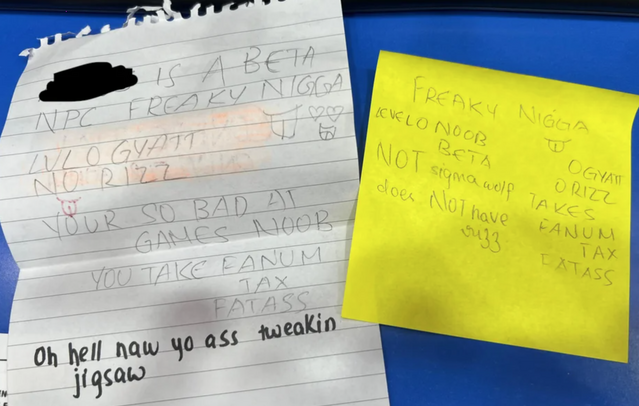 IS A BETA
NPC FREAKY NIGGA
LVL 0 GYATT
NO RIZZ
YOUR SO BAD At
GAMES NOOB
YOU TAKE FANUM
TAX
FATASS
Oh hell naw yo ass tweakin
jigsaw
FREAKY NIGGA
LEVEL 0 NOOB
BETA
NOT sigma wolf
does NOT have
rizz
0 GYATT
0 RIZZ
TAKES
FANUM
TAX
FATASS